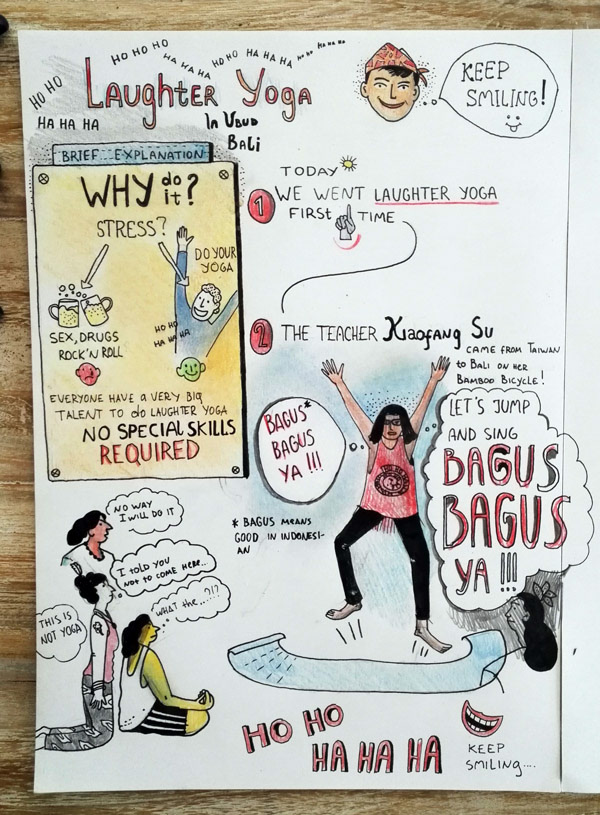 HO HO
HO HO HO
HA HA HA
HO HO
HA HA HA
HO HO
HA HA HA
HA HA HA
Laughter Yoga
In Ubud
Bali
KEEP
SMILING!
BRIEF EXPLANATION
WHY do it?
STRESS?
DO YOUR
YOGA
HO HO
HA HA HA
SEX, DRUGS
ROCK'N ROLL
EVERYONE HAVE A VERY BIG
TALENT TO do LAUGHTER YOGA
NO SPECIAL SKILLS
REQUIRED
TODAY
1 WE WENT LAUGHTER YOGA
FIRST TIME
2 THE TEACHER Xiaofang Su
CAME FROM TAIWAN
to BALI ON HER
BAMBOO BICYCLE!
BAGUS*
BAGUS
YA !!!
LET'S JUMP
AND SING
BAGUS
BAGUS
YA !!!
* BAGUS MEANS
GOOD IN INDONESI-
AN
NO WAY
I WILL DO IT
I TOLD YOU
NOT TO COME HERE...
WHAT the..?!?
THIS IS
NOT YOGA
HO HO
HA HA HA
KEEP
SMILING....